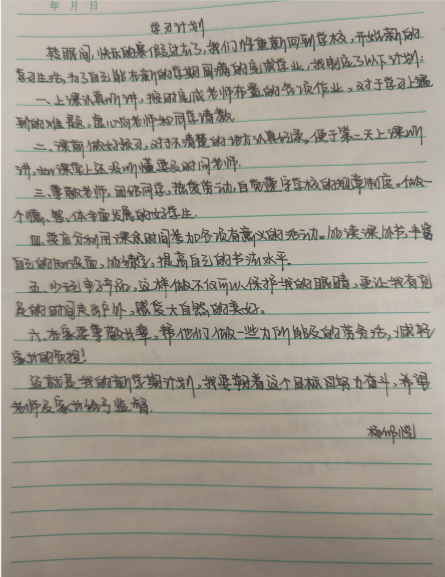 年 月 日
学习计划
转眼间,快乐的暑假过去了,我们将重新回到学校,开始新的
学习生活,为了自己能在新的学期圆满的完成学业,我制定了以下计划:
一、上课认真听讲,按时完成老师布置的各项作业。对于学习上遇
到的难题,虚心向老师和同学请教.
二、课前做好预习,对于不清楚的地方认真记录。便于第二天上课听
讲,如课堂上还没听懂要及时问老师.
三、尊敬老师,团结同学,热爱劳动,自觉遵守学校的规章制度。做一
个德、智、体全面发展的好学生.
四、要充分利用课余时间参加各项有意义的活动。加读课外书,丰富
自己的知识面,加练字,提高自己的书法水平。
五、少玩电子产品,这样做不仅可以保护我的眼睛,更让我有充
足的时间走出户外,感受大自然的美好。
六、在家要尊敬长辈,帮他们做一些力所能及的劳务活,减轻
家长的负担!
这就是我的新学期计划,我要朝着这个目标努力奋斗,希望
老师及家长给予监督.